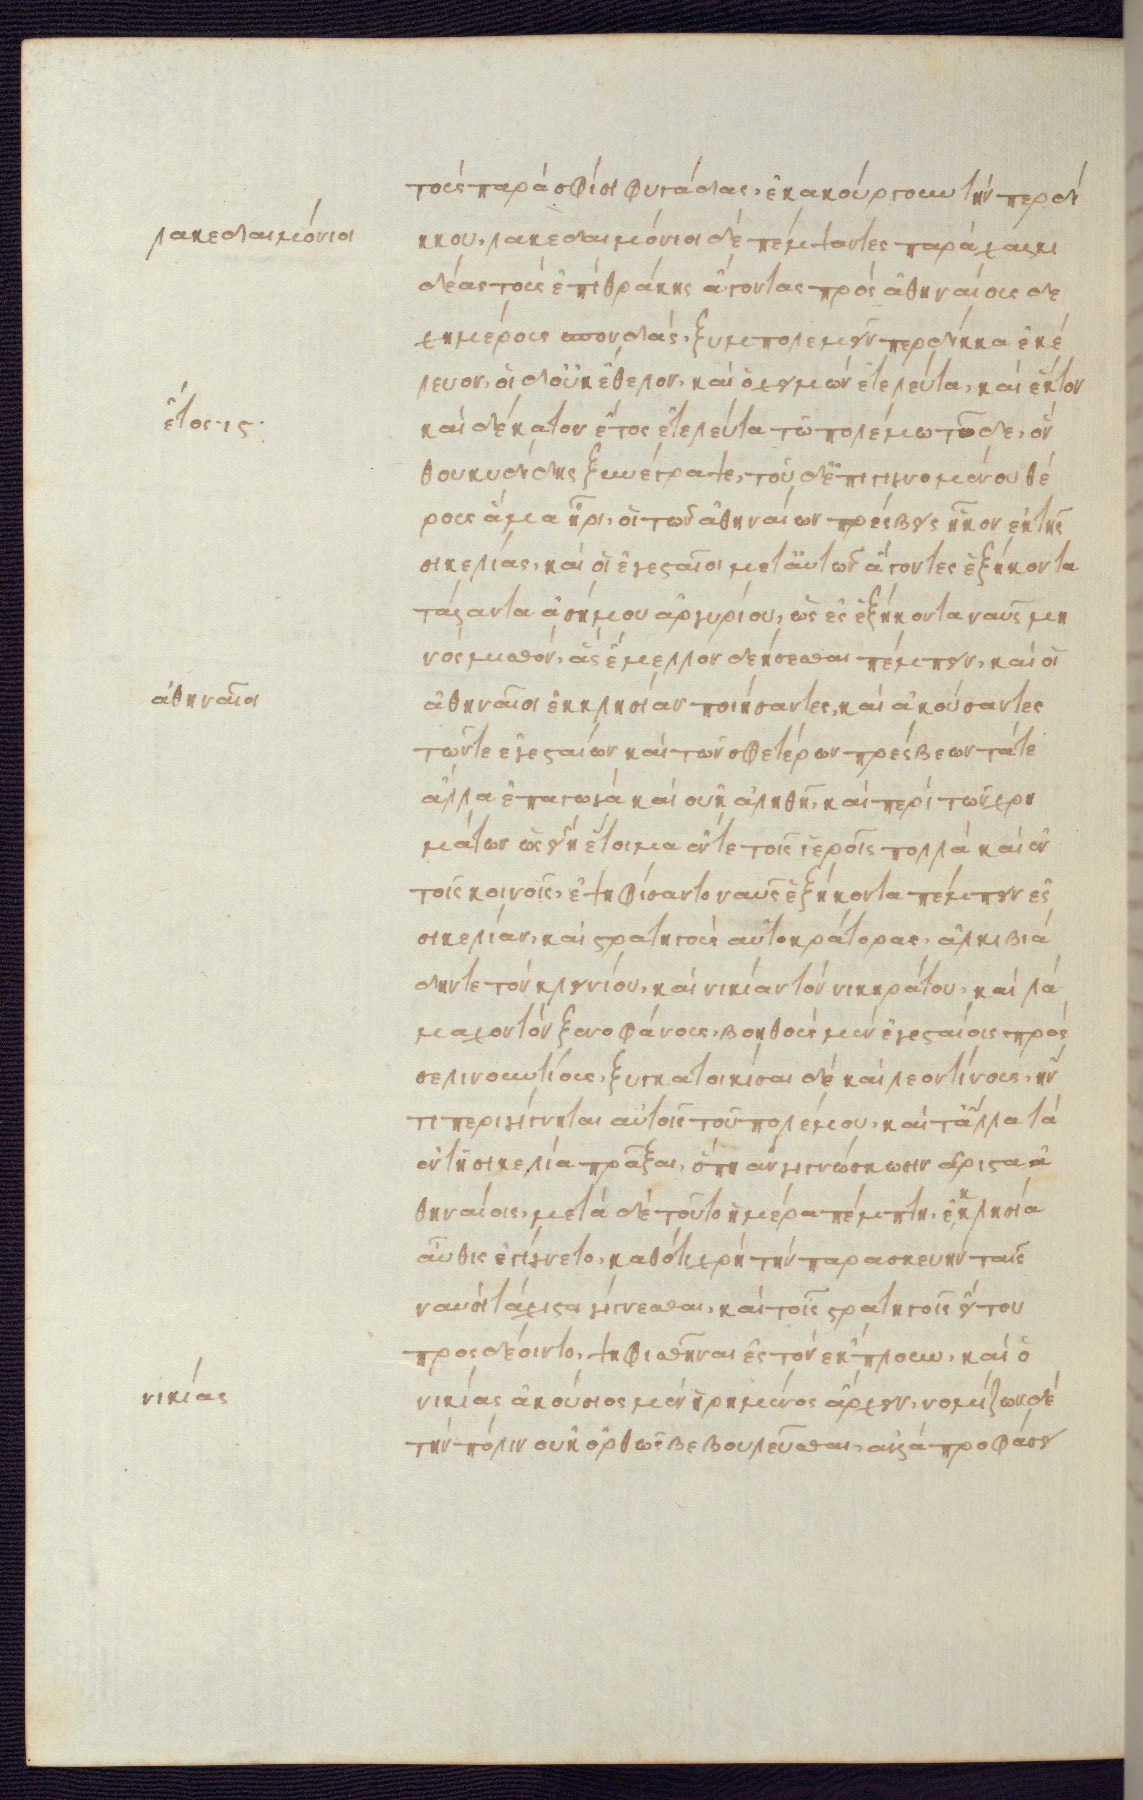 τοὺς παρὰ σφίσι φυγάδας, ἐκακούργουν τὴν περδί
λακεδαιμόνιοι
κκου, λακεδαιμόνιοι δὲ πέμψαντες παρὰ χαλκι
δέας τοὺς ἐπὶ θράκης ἄγοντας πρὸς ἀθηναίους δε
χημέρους σπονδάς, ξυμπολεμεῖν περδίκκα ἐκέ
λευον, οἱ δ' οὐκ ἤθελον, καὶ ὁ χειμὼν ἐτελεύτα, καὶ ἕκτον
ἔτος ις
καὶ δέκατον ἔτος ἐτελεύτα τῶ πολέμω τῶδε, ὃν
θουκυδίδης ξυνέγραψε, τοῦ δ' ἐπιγιγνομένου θέ
ρους ἅμα ἦρι, οἱ τῶν ἀθηναίων πρέσβεις ἧκον ἐκ τῆς
σικελίας, καὶ οἱ ἐγεσταῖοι μετ' αὐτῶν ἄγοντες ἑξήκοντα
τάλαντα ἀσήμου ἀργυρίου, ὡς ἐς ἑξήκοντα ναῦς μη
νὸς μισθόν, ἃς ἔμελλον δεήσεσθαι πέμπειν, καὶ οἱ
ἀθηναῖοι
ἀθηναῖοι ἐκκλησίαν ποιήσαντες, καὶ ἀκούσαντες
τῶν τε ἐγεσταίων καὶ τῶν σφετέρων πρέσβεων τά τε
ἄλλα ἐπαγωγὰ καὶ οὐκ ἀληθῆ, καὶ περὶ τῶν χρη
μάτων ὡς εἴη ἕτοιμα ἔν τε τοῖς ἱεροῖς πολλὰ καὶ ἐν
τοῖς κοινοῖς, ἐψηφίσαντο ναῦς ἑξήκοντα πέμπειν ἐς
σικελίαν, καὶ στρατηγοὺς αὐτοκράτορας, ἀλκιβιά
δην τε τὸν κλεινίου, καὶ νικίαν τὸν νικηράτου, καὶ λά
μαχον τὸν ξενοφάνους, βοηθοὺς μὲν ἐγεσταίοις πρὸς
σελινουντίους, ξυγκατοικίσαι δὲ καὶ λεοντίνους, ἤν
τι περιγίγνηται αὐτοῖς τοῦ πολέμου, καὶ τἄλλα τὰ
ἐν τῆ σικελία πρᾶξαι, ὅπη ἂν γιγνώσκωσιν ἄριστα ἀ
θηναίοις, μετὰ δὲ τοῦτο ἡμέρα πέμπτη, ἐκκλησία
αὖθις ἐγίγνετο, καθότι χρὴ τὴν παρασκευὴν ταῖς
ναυσὶ τάχιστα γίγνεσθαι, καὶ τοῖς στρατηγοῖς εἴ του
προσδέοιντο, ψηφισθῆναι ἐς τὸν ἔκπλουν, καὶ ὁ
νικίας
νικίας ἀκούσιος μὲν ἡρημένος ἄρχειν, νομίζων δὲ
τὴν πόλιν οὐκ ὀρθῶς βεβουλεῦσθαι, ἀλλὰ προφάσει